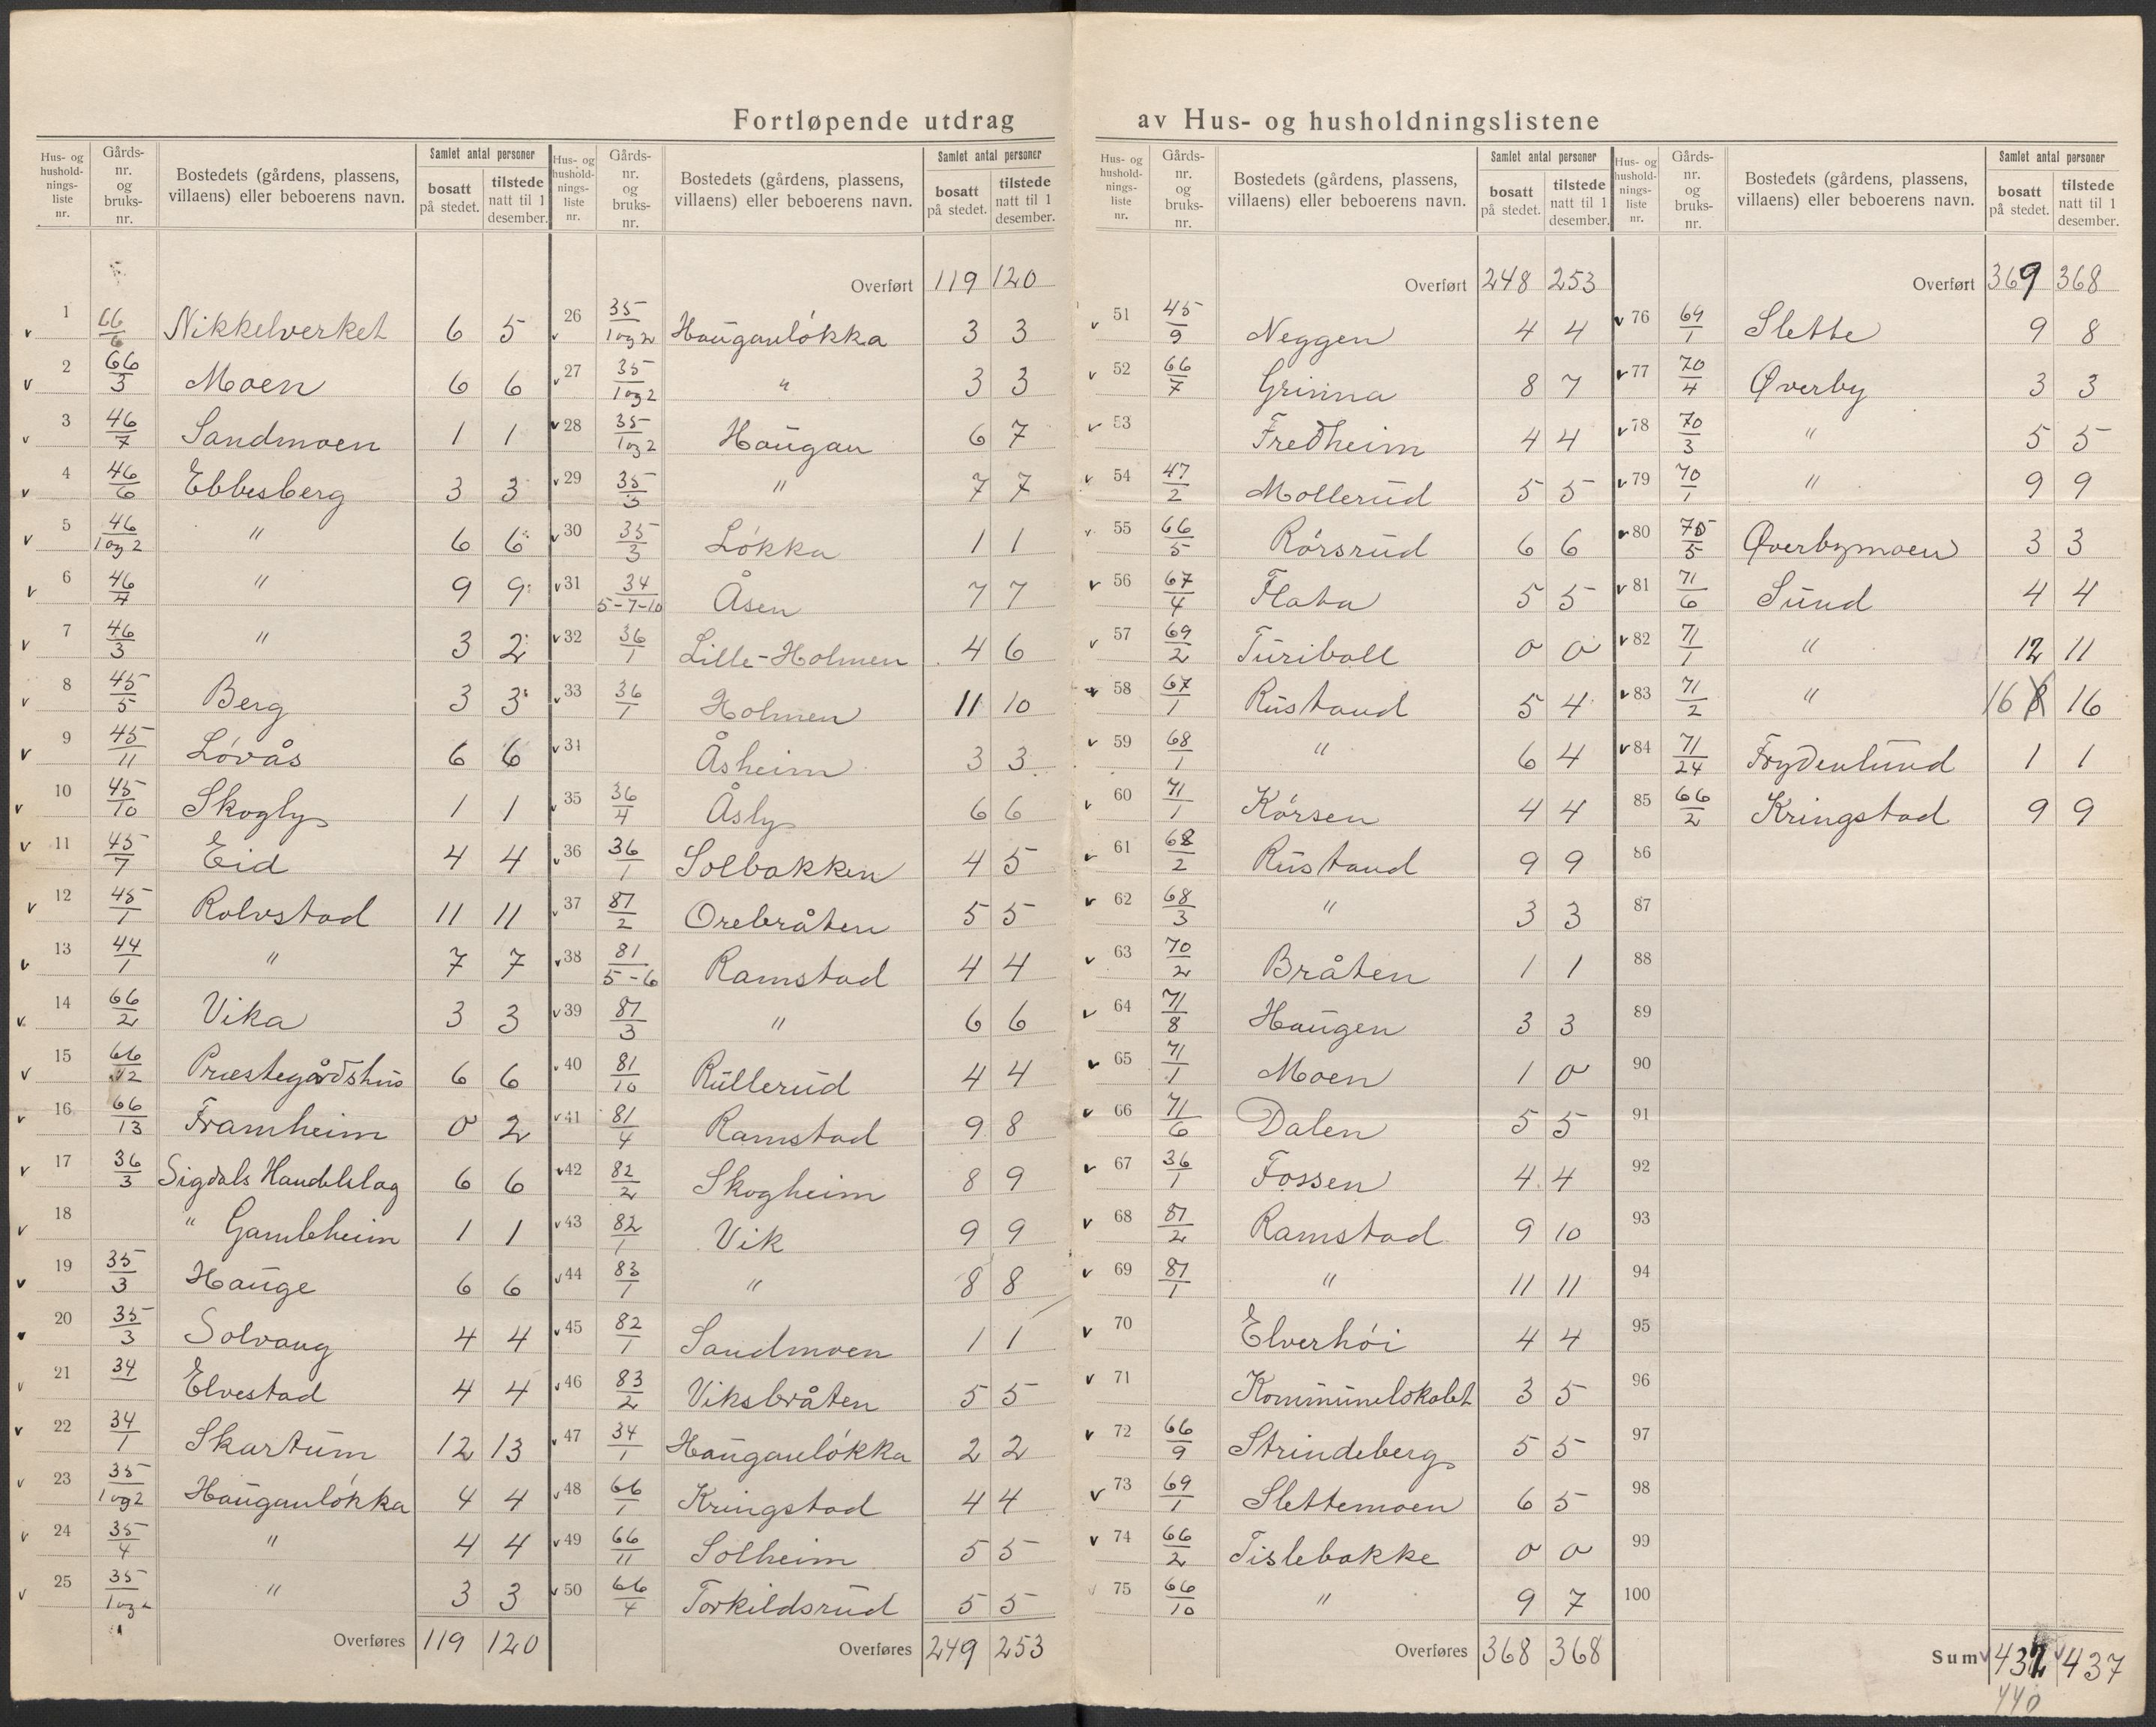 Fortløpende utdrag av Hus- og husholdningslistene
Hus- og husholdnings-liste nr. | Gårds-nr. og bruks-nr. | Bostedets (gårdens, plassens, villaens) eller beboerens navn. | Samlet antal personer bosatt på stedet. | tilstede natt til 1 desember.
1 66/6 Nikkelverket 6 5
2 66/3 Moen 6 6
3 46/7 Sandmoen 1 1
4 46/6 Ebbesberg 3 3
5 46/1og2 " 6 6
6 46/4 " 9 9
7 46/3 " 3 2
8 45/5 Berg 3 3
9 45/11 Løvås 6 6
10 45/10 Skogly 1 1
11 45/7 Eid 4 4
12 45/1 Rolvstad 11 11
13 44/1 " 7 7
14 66/2 Vika 3 3
15 66/12 Præstegårdshus 6 6
16 66/13 Framheim 0 2
17 36/3 Sigdals Handelslag 6 6
18 " Gamleheim 1 1
19 35/3 Hauge 6 6
20 35/3 Solvang 4 4
21 34 Elvestad 4 4
22 34/1 Skartum 12 13
23 35/1og2 Hauganløkka 4 4
24 35/4 " 4 4
25 35/1og2 " 3 3
Overføres 119 120
Hus- og husholdnings-liste nr. | Gårds-nr. og bruks-nr. | Bostedets (gårdens, plassens, villaens) eller beboerens navn. | Samlet antal personer bosatt på stedet. | tilstede natt til 1 desember.
Overført 119 120
26 35/1og2 Hauganløkka 3 3
27 35/1og2 " 3 3
28 35/1og2 Haugan 6 7
29 35/3 " 7 7
30 35/3 Løkka 1 1
31 34/5-7-10 Åsen 7 7
32 36/1 Lille-Holmen 4 6
33 36/1 Holmen 11 10
34 Åsheim 3 3
35 36/4 Åsly 6 6
36 36/1 Solbakken 4 5
37 81/2 Orebråten 5 5
38 81/5-6 Ramstad 4 4
39 81/3 " 6 6
40 81/10 Rullerud 4 4
41 81/4 Ramstad 9 8
42 82/2 Skogheim 8 9
43 82/1 Vik 9 9
44 83/1 " 8 8
45 82/1 Sandmoen 1 1
46 83/2 Viksbråten 5 5
47 34/1 Hauganløkka 2 2
48 66/1 Kringstad 4 4
49 66/11 Solheim 5 5
50 66/4 Torkildsrud 5 5
Overføres 249 253
Hus- og husholdnings-liste nr. | Gårds-nr. og bruks-nr. | Bostedets (gårdens, plassens, villaens) eller beboerens navn. | Samlet antal personer bosatt på stedet. | tilstede natt til 1 desember.
Overført 248 253
51 45/9 Neggen 4 4
52 66/7 Grinna 8 7
53 Fredheim 4 4
54 47/2 Mollerud 5 5
55 66/5 Rørsrud 6 6
56 67/4 Flata 5 5
57 69/2 Turiball 0 0
58 67/1 Rustand 5 4
59 68/1 " 6 4
60 71/1 Kørsen 4 4
61 68/2 Rustand 9 9
62 68/3 " 3 3
63 70/2 Bråten 1 1
64 71/8 Haugen 3 3
65 71/1 Moen 1 0
66 71/6 Dalen 5 5
67 36/1 Fossen 4 4
68 81/2 Ramstad 9 10
69 81/1 " 11 11
70 Elverhøi 4 4
71 Kommunelokalet 3 5
72 66/9 Strindeberg 5 5
73 69/1 Slettemoen 6 5
74 66/2 Tislebakke 0 0
75 66/10 " 9 7
Overføres 368 368
Hus- og husholdnings-liste nr. | Gårds-nr. og bruks-nr. | Bostedets (gårdens, plassens, villaens) eller beboerens navn. | Samlet antal personer bosatt på stedet. | tilstede natt til 1 desember.
Overført 369 368
76 69/1 Slette 9 8
77 70/4 Øverby 3 3
78 70/3 " 5 5
79 70/1 " 9 9
80 70/5 Øverbymoen 3 3
81 71/6 Sund 4 4
82 71/1 " 12 11
83 71/2 " 16 8 16
84 71/24 Frydenlund 1 1
85 66/2 Kringstad 9 9
86
87
88
89
90
91
92
93
94
95
96
97
98
99
100
Sum 432 437
440